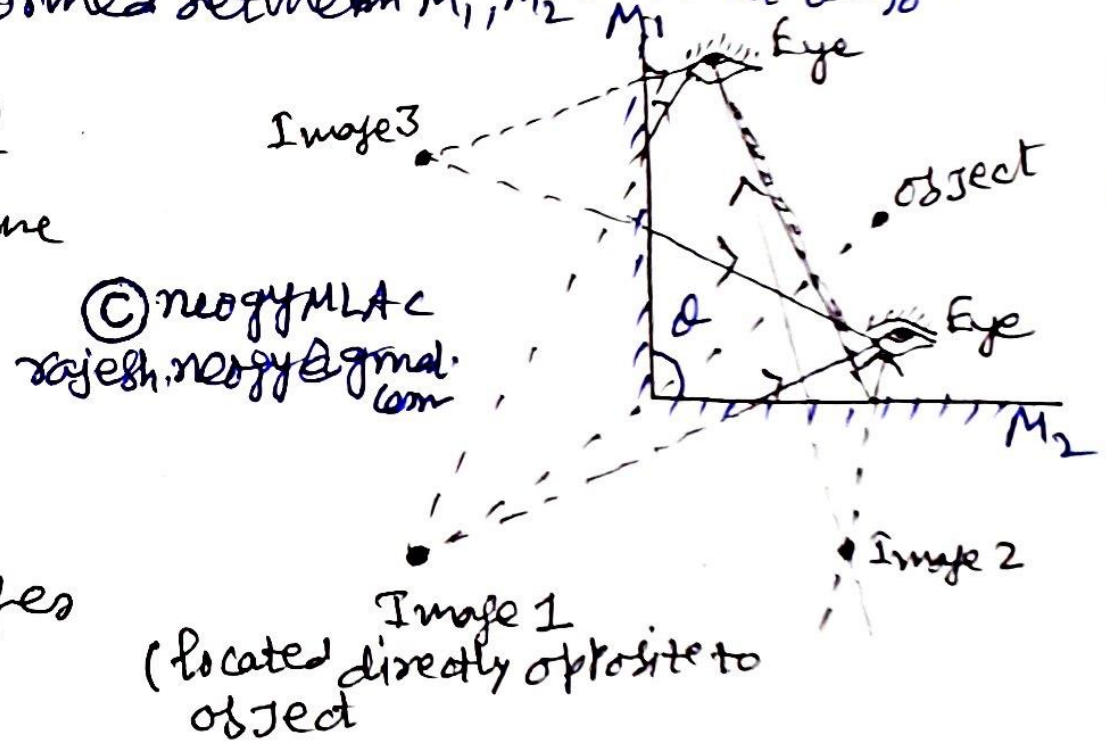 between M₁, M₂
M1
Eye
Image3
object
© neogyMLAC
rajesh.neogy@gmal.
com
θ
Eye
M2
Image 2
Image 1
(located directly opposite to
object